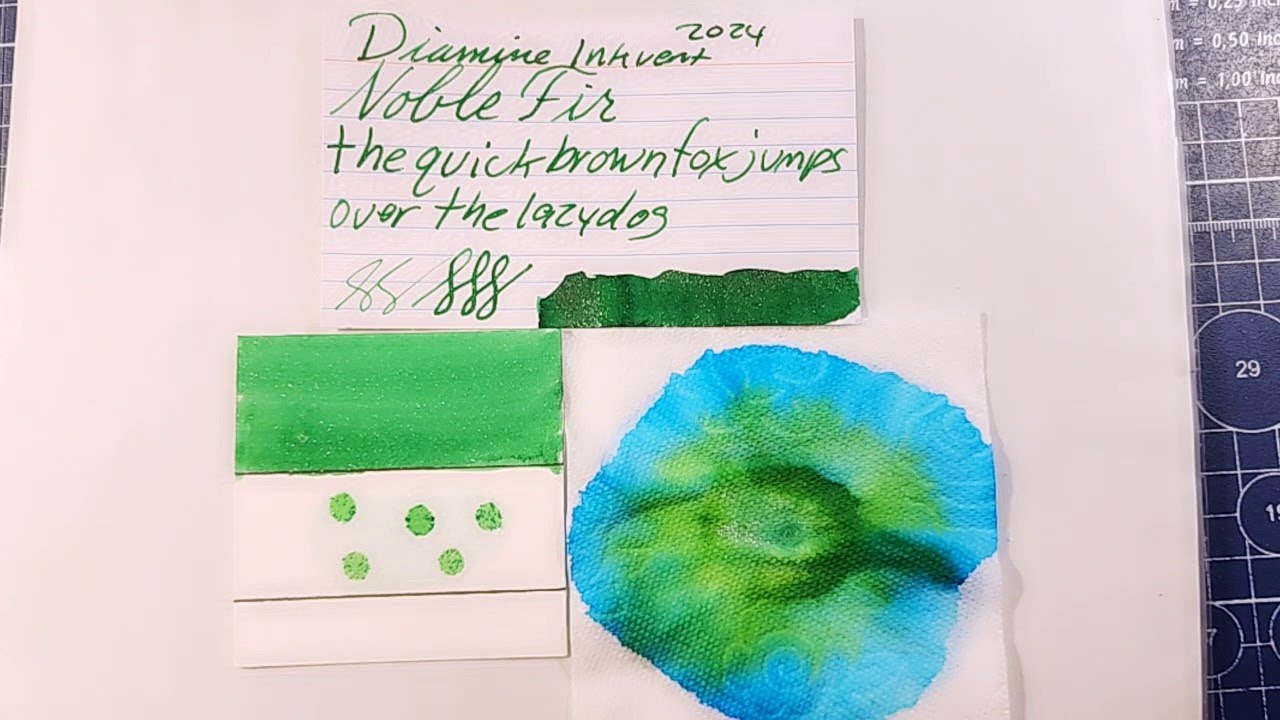 Diamine Inkvent 2024
Noble Fir
the quick brown fox jumps
over the lazy dog
= 0,25
m = 0,50 Inc
m = 1,00 Inc
29